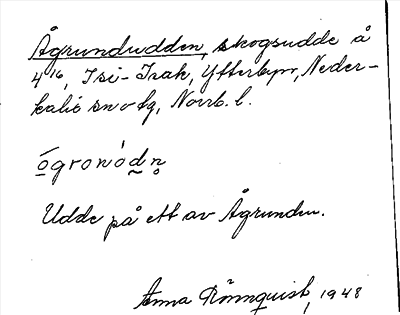 Ågrundudden, skogsudde å
4¹⁶, Isi-Isak, Ytterbyn, Neder-
kalix sn o fg, Norrb. l.
ógronòdn
Udde på ett av Ågrunden.
Anna Rönnquist, 1948